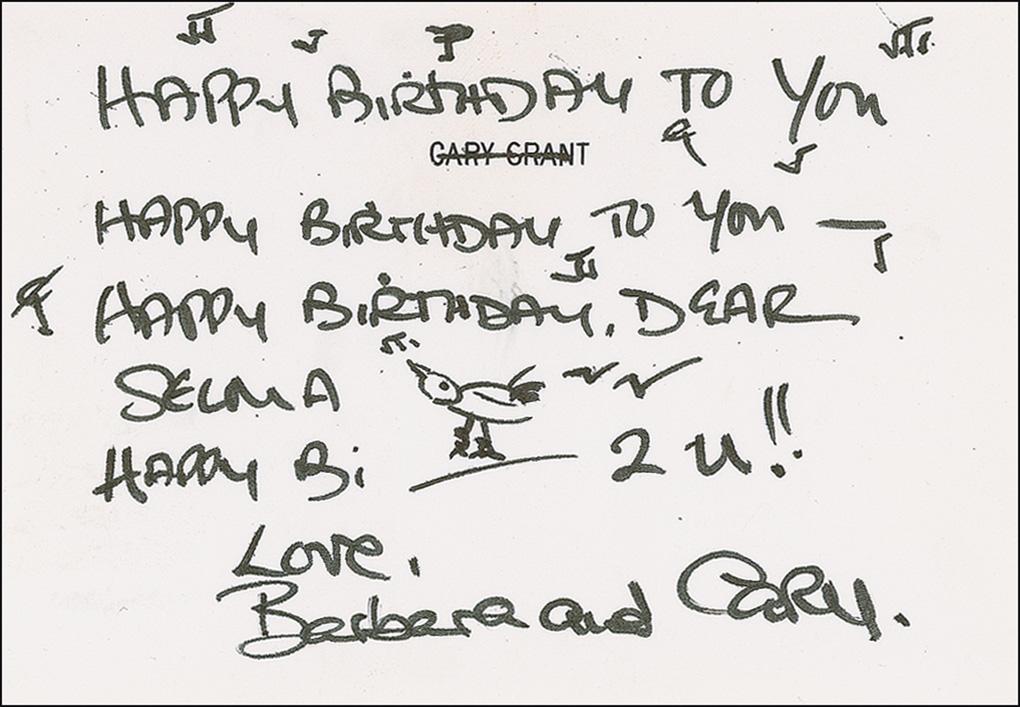 HAPPY BIRTHDAY TO YOU
CARY GRANT
HAPPY BIRTHDAY TO YOU —
HAPPY BIRTHDAY, DEAR
SELMA
HAPPY Bi 2 U!!
Love,
Barbara and Cary.